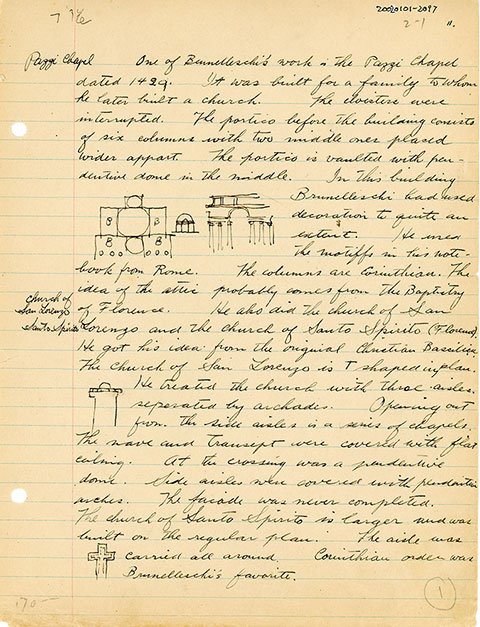 2020101-2097
2-1
11.
Pazzi Chapel
One of Brunelleschi's work is the Pazzi Chapel
dated 1429. It was built for a family to whom
he later built a church. The were
interrupted. The portico before the building consists
of six columns with two middle ones placed
wider appart. The portico is vaulted with pen-
dentive dome in the middle. In this building
Brunelleschi had used
decoration to quite an
extent. He used
the motiffs in his note-
book from Rome. The columns are Corinthian. The
idea of the attic probably comes from the Baptistry
of Florence. He also did the church of San
church of
San Lorenzo
Santo Spirito
Lorenzo and the church of Santo Spirito (Florence).
He got his idea from the original Christian Basilica.
The church of San Lorenzo is T shaped in plan.
He treated the church with three aisles.
seperated by archades. Opening out
from the side aisles is a series of chapels.
The nave and transept were covered with flat
ceiling. At the crossing was a pendentive
dome. Side aisles were covered with pendentive
arches. The facade was never completed.
The church of Santo Spirito is larger and was
built on the regular plan. The aisle was
carried all around Corinthian order was
Brunelleschi's favorite.
B
B
B
B
1